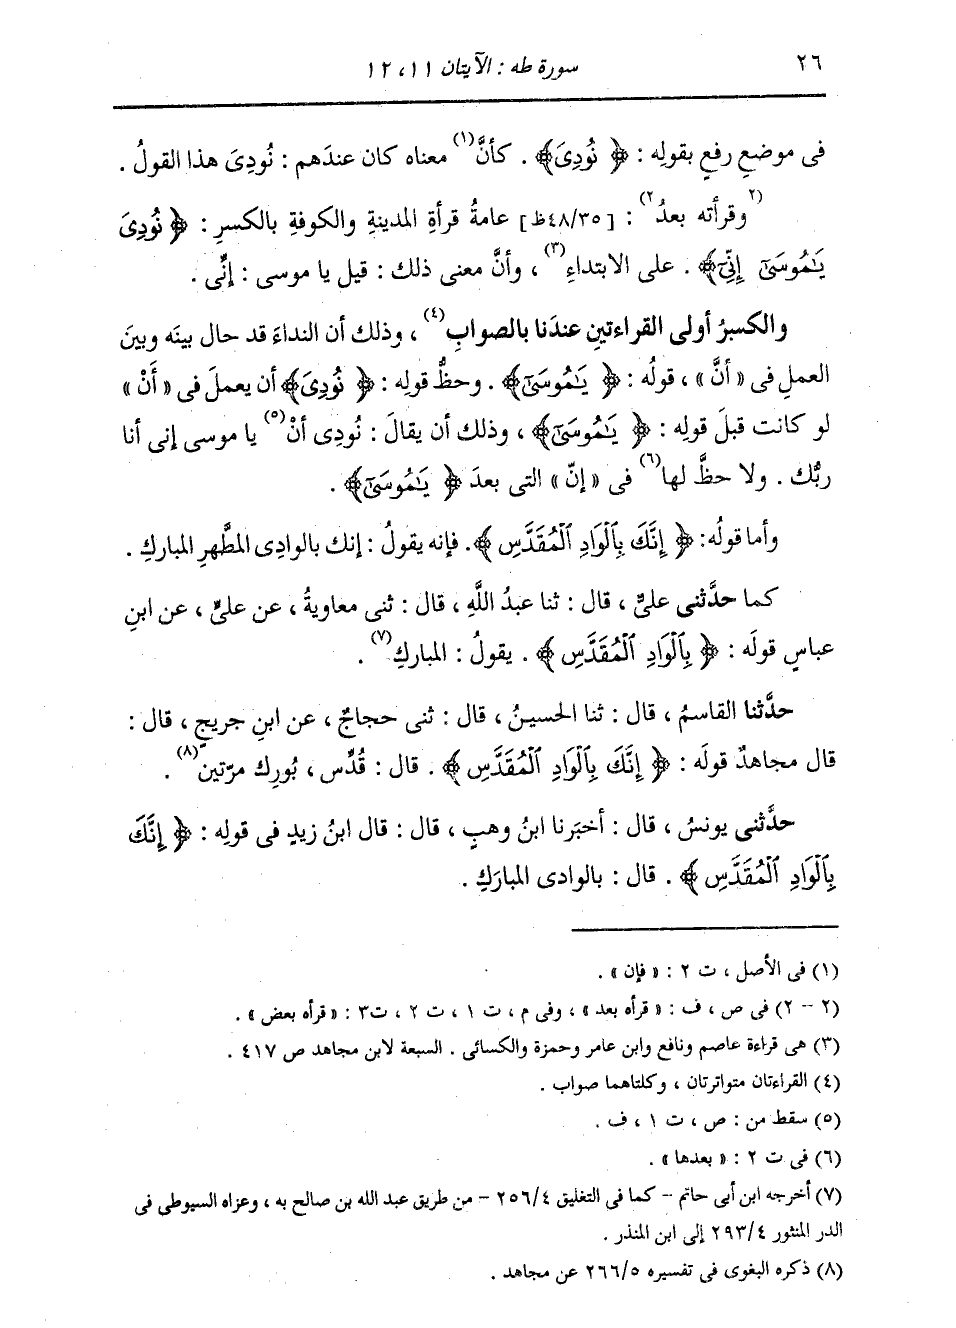 ٢٦
سورة طه : الآيتان ١١، ١٢
فى موضعِ رفعٍ بقولِه : ﴿ نُودِىَ﴾ . كأنَّ(١) معناه كان عندَهم : نُودِىَ هذا القولُ .
(٢وقرأته بعدُ٢) : [٤٨/٣٥ظ] عامةُ قرأةِ المدينةِ والكوفةِ بالكسرِ : ﴿ نُودِىَ
يَٰمُوسَىٰٓ إِنِّىٓ﴾ . على الابتداءِ(٣) ، وأنَّ معنى ذلك : قيل يا موسى : إنِّى .
والكسرُ أولى القراءتينِ عندَنا بالصوابِ(٤) ، وذلك أن النداءَ قد حال بينَه وبينَ
العملِ فى « أنَّ » ، قولُه : ﴿ يَٰمُوسَىٰٓ﴾ . وحظُّ قولِه : ﴿ نُودِىَ﴾ أن يعملَ فى « أَنْ »
لو كانت قبلَ قولِه : ﴿ يَٰمُوسَىٰٓ﴾ ، وذلك أن يقالَ : نُودِى أنْ(٥) يا موسى إنى أنا
ربُّك . ولا حظَّ لها(٦) فى « إنّ » التى بعدَ ﴿ يَٰمُوسَىٰٓ﴾ .
وأما قولُه: ﴿ إِنَّكَ بِٱلْوَادِ ٱلْمُقَدَّسِ ﴾. فإنه يقولُ : إنك بالوادِى المطَّهرِ المباركِ .
كما حدَّثنى علىٌّ ، قال : ثنا عبدُ اللَّهِ ، قال : ثنى معاويةُ ، عن علىٍّ ، عن ابنِ
عباسٍ قولَه : ﴿ بِٱلْوَادِ ٱلْمُقَدَّسِ ﴾ . يقولُ : المباركِ(٧) .
حدَّثنا القاسمُ ، قال : ثنا الحسينُ ، قال : ثنى حجاجٌ ، عن ابنِ جريجٍ ، قال :
قال مجاهدٌ قولَه : ﴿ إِنَّكَ بِٱلْوَادِ ٱلْمُقَدَّسِ ﴾ . قال : قُدِّس ، بُورِك مرّتين(٨) .
حدَّثنى يونسُ ، قال : أخبَرنا ابنُ وهبٍ ، قال : قال ابنُ زيدٍ فى قولِه : ﴿ إِنَّكَ
بِٱلْوَادِ ٱلْمُقَدَّسِ ﴾ . قال : بالوادى المبارَكِ .
(١) فى الأصل ، ت ٢ : « فإن » .
(٢ - ٢) فى ص ، ف : « قرأه بعد » ، وفى م ، ت ١ ، ت ٢ ، ت٣ : « قرأه بعض » .
(٣) هى قراءة عاصم ونافع وابن عامر وحمزة والكسائى . السبعة لابن مجاهد ص ٤١٧ .
(٤) القراءتان متواترتان ، وكلتاهما صواب .
(٥) سقط من : ص ، ت ١ ، ف .
(٦) فى ت ٢ : « بعدها » .
(٧) أخرجه ابن أبى حاتم - كما فى التغليق ٢٥٦/٤ - من طريق عبد الله بن صالح به ، وعزاه السيوطى فى
الدر المنثور ٢٩٣/٤ إلى ابن المنذر .
(٨) ذكره البغوى فى تفسيره ٢٦٦/٥ عن مجاهد .